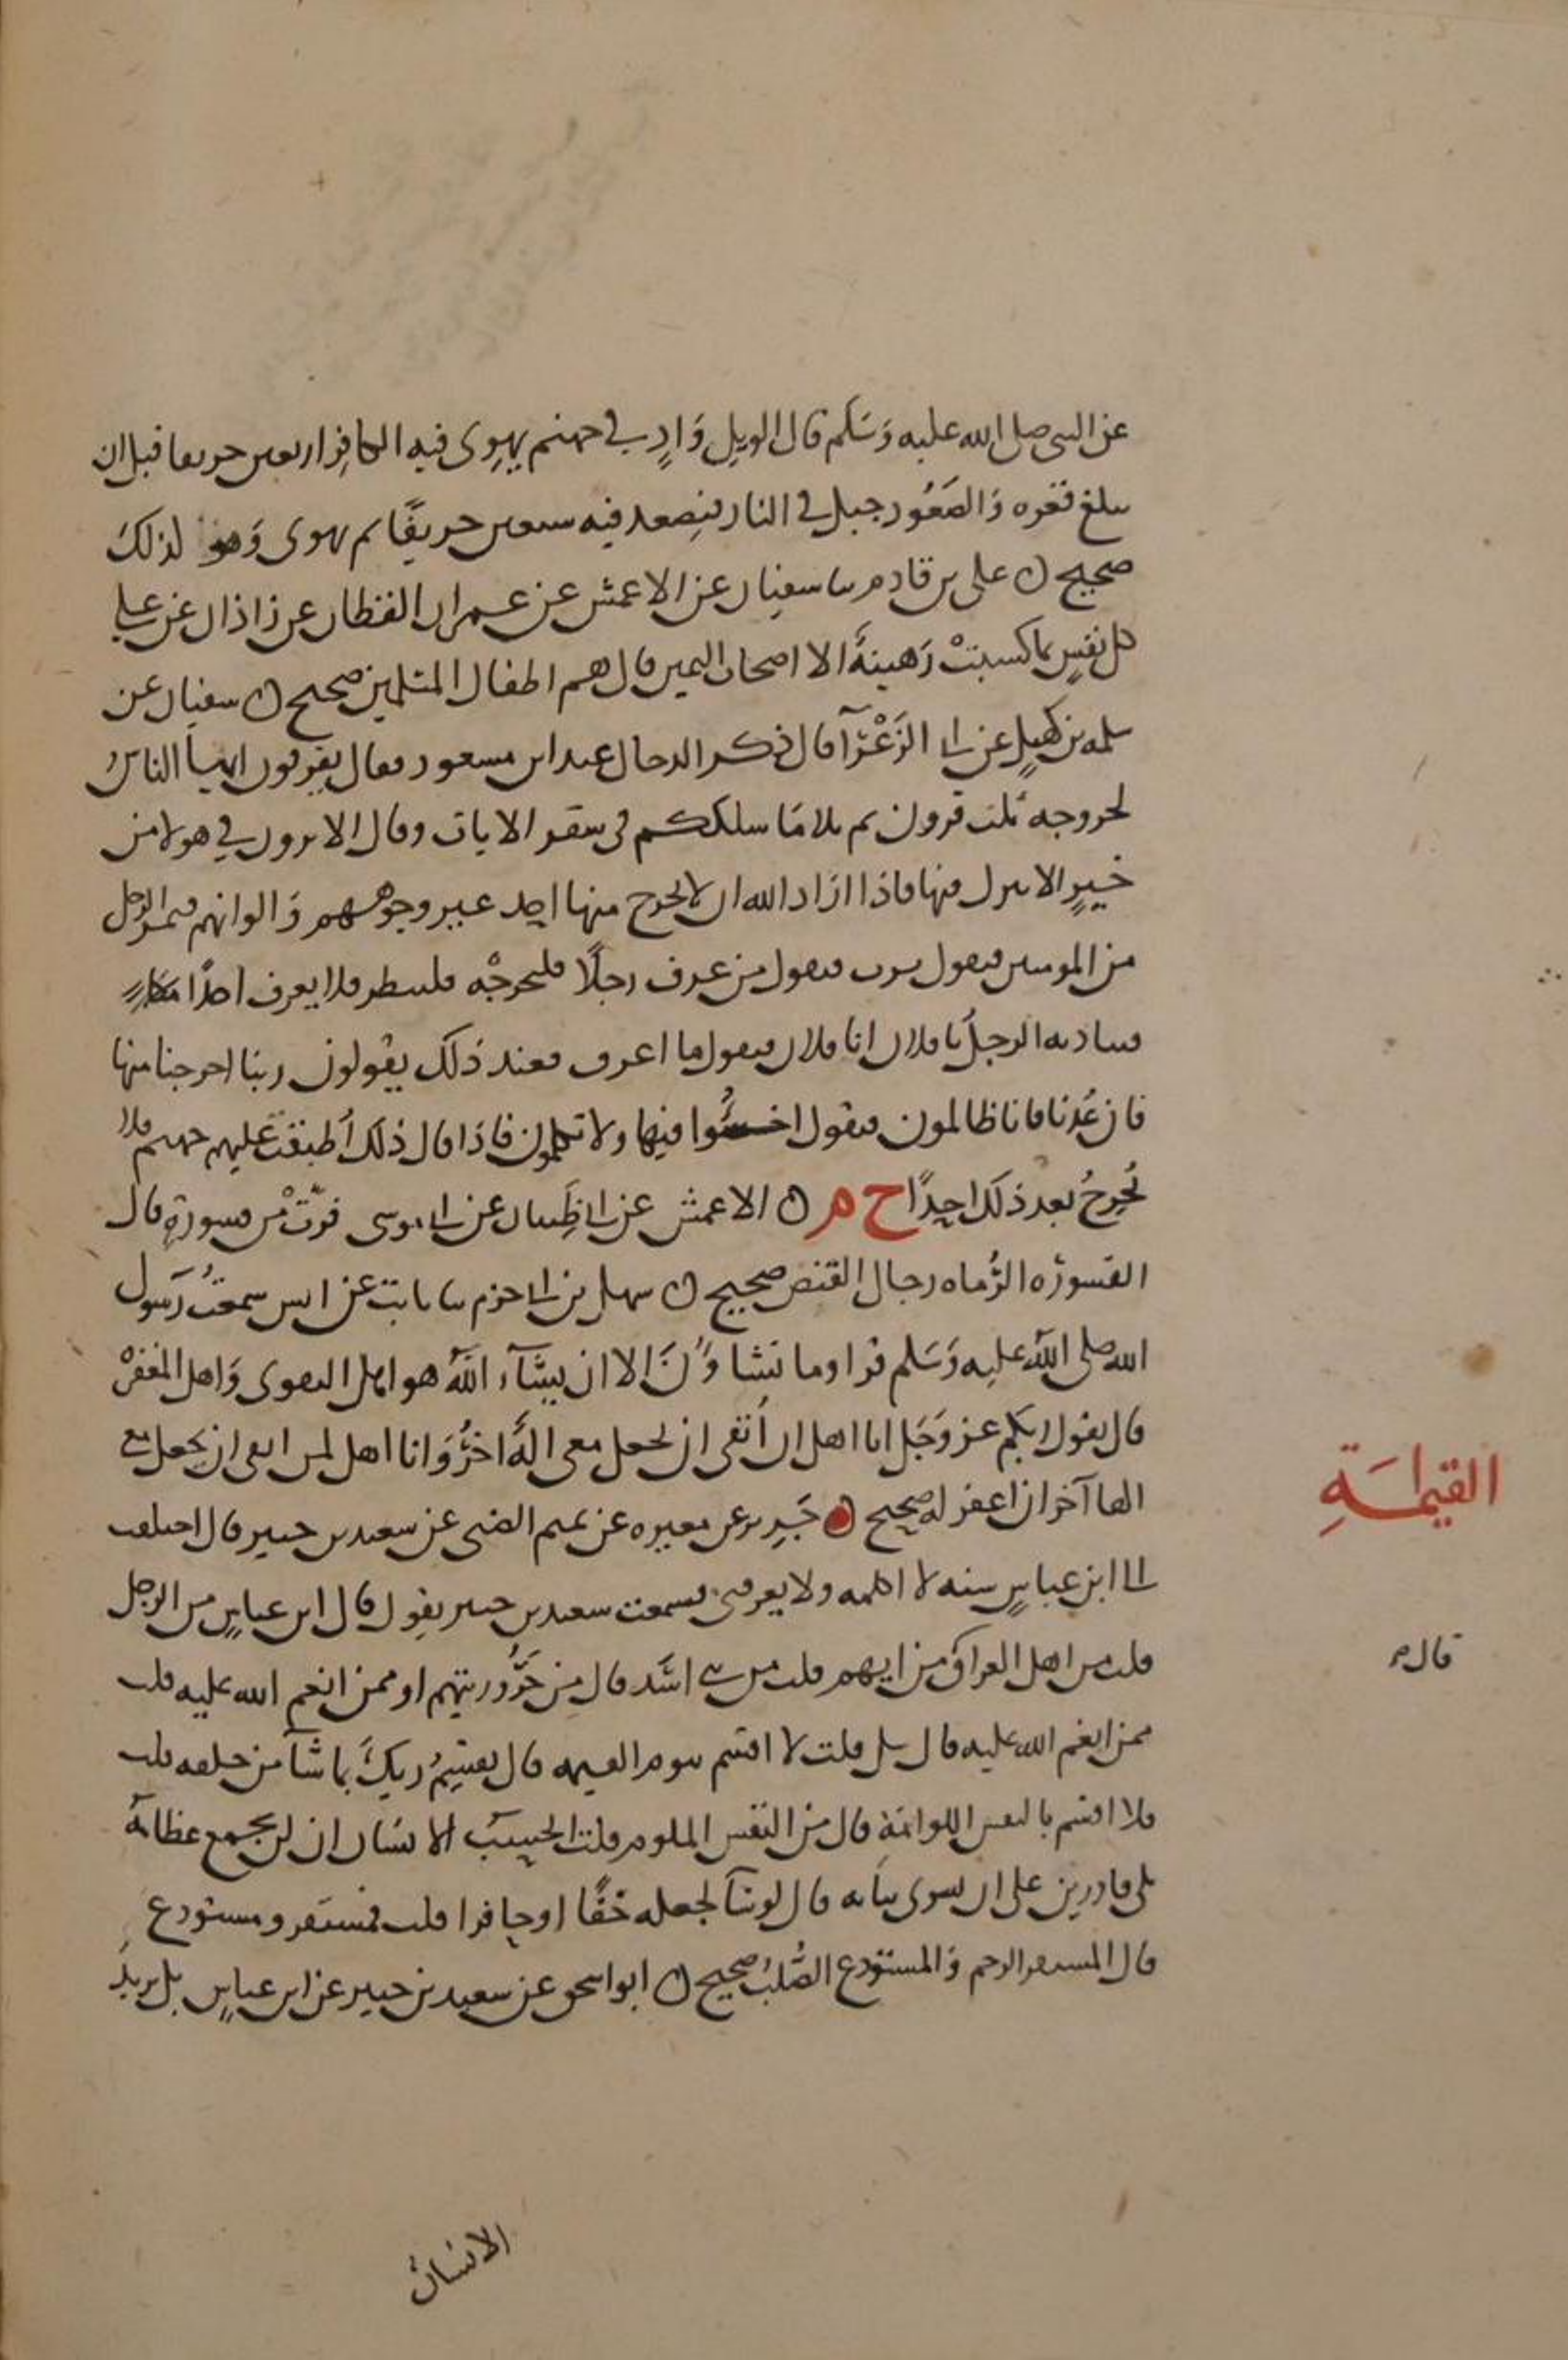 عن النبي صلى الله عليه وسلم قال الويل واد في جهنم يهوي فيه الكافر اربعين خريفا قبل ان
يبلغ قعره والصعود جبل في النار فيصعد فيه سبعين خريفا ثم يهوي وهو كذلك
صحيح ○ علي بن قادم ثنا سفيان عن الاعمش عن عمران القطان عن زاذان عن علي
كل نفس بما كسبت رهينة الا اصحاب اليمين قال هم اطفال المسلمين صحيح ○ سفيان عن
سلمه بن كهيل عن ابي الزعرآ قال ذكر الدجال عند ابن مسعود فقال يفترقون ايها الناس
لخروجه ثلث فرق ثم تلا ما سلككم في سقر الايات وقال الا ترون في هولا من
خير الا ينزل فيها فاذا اراد الله ان لا يخرج منها احد غير وجوههم والوانهم فيجي الرجل
من المومنين فيقول يرب فيقول من عرف رجلا فليخرجه فينظر فلا يعرف احدا
فيناديه الرجل يا فلان انا فلان فيقول ما اعرفك فعند ذلك يقولون ربنا اخرجنا منها
فان عدنا فانا ظالمون فيقول اخسئوا فيها ولا تكلمون فاذا قال ذلك اطبقت عليهم جهنم فلا
يخرج بعد ذلك احدا خ م ○ الاعمش عن ابي ظبيان عن ابي موسى فرت من قسورة قال
القسوره الرماه رجال القنص صحيح ○ سهيل بن ابي حزم ثنا ثابت عن انس سمعت رسول
الله صلى الله عليه وسلم قرا وما تشاؤن الا ان يشآء الله هو اهل التقوى واهل المغفرة
قال يقول ربكم عز وجل انا اهل ان اتقى ان يجعل معي اله اخر وانا اهل لمن اتقى ان يجعل مع
الها آخر ان اغفر له صحيح ○ جرير عن مغيره عن تميم الضبي عن سعيد بن جبير قال اختلفت
الى ابن عباس سنه لا اكلمه ولا يعرفني فسمعت سعيد بن جبير يقول قال ابن عباس من الرجل
قلت من اهل العراق من ايهم قلت من بني اسد قال من حروريتهم او ممن انعم الله عليه قلت
ممن انعم الله عليه قال سل قلت لا اقسم بيوم القيمه قال يقسم ربك بما شآ من خلقه قلت
فلا اقسم بالنفس اللوامة قال من النفس الملوم قلت ايحسب الانسان ان لن نجمع عظامه
بلى قادرين على ان نسوي بنانه قال لو شآ لجعله خفا او حافرا قلت فمستقر ومستودع
قال المستقر الرحم والمستودع الصلب صحيح ○ ابو اسحق عن سعيد بن جبير عن ابن عباس بل يريد
القيامة
قال م
الانسان